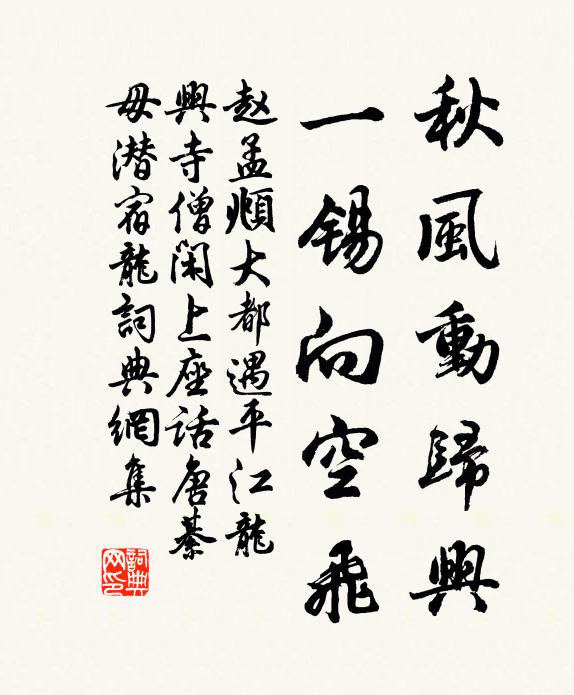 秋風動歸興
一錫向空飛
趙孟頫大都遇平江龍
興寺僧閑上座話唐綦
毋潜宿龍詞典網集
詞典網印